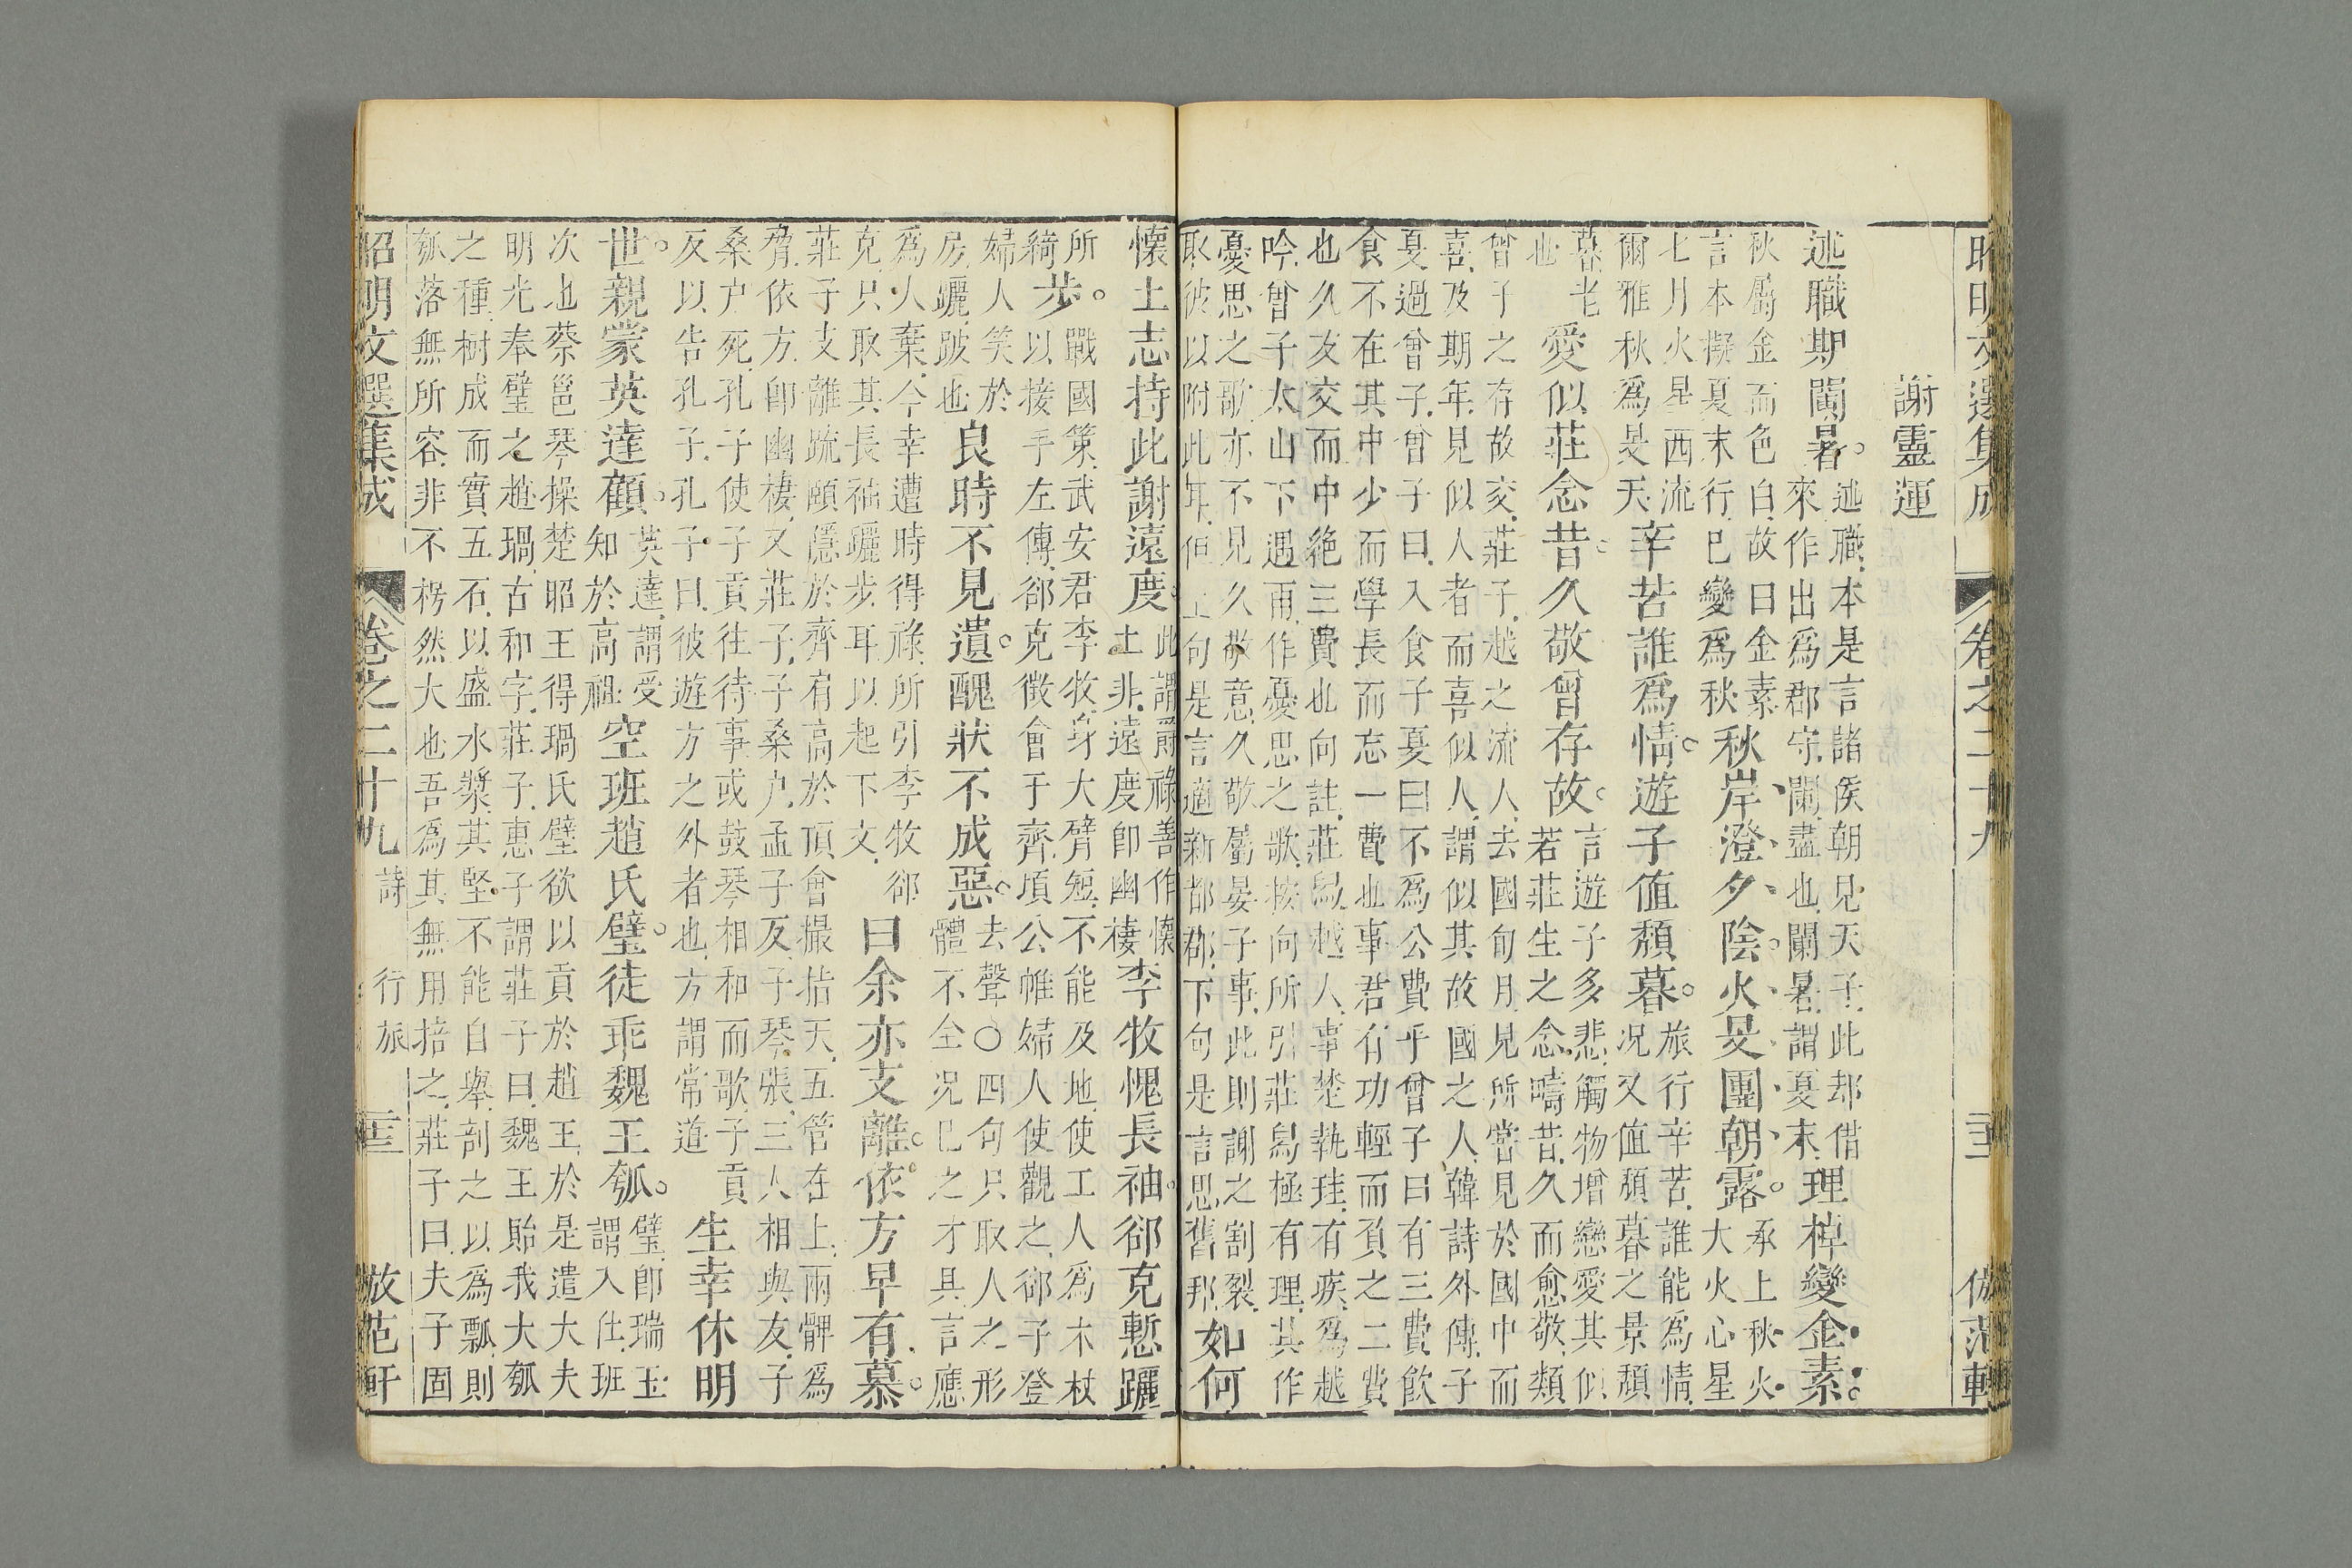 昭明文選集成
卷之二十九
倣范軒
謝靈運
述職期闌暑。述職本是言諸侯朝見天子此却借
來作出為郡守闌盡也闌暑謂夏末理棹變金素。
秋屬金而色白故曰金素
言本擬夏末行已變爲秋秋岸澄夕陰。火旻團朝露。承上秋火
大火心星
七月火星西流
爾雅秋爲旻天辛苦誰爲情。遊子值頹暮。旅行辛苦誰能爲情
况又值頹暮之景頹
暮老
也愛似莊念昔。久敬曾存故。言遊子多悲觸物增戀愛其似
若莊生之念疇昔久而愈敬類
曾子之存故交莊子越之流人去國旬月見所嘗見於國中而
喜及期年見似人者而喜似人謂似其故國之人韓詩外傳子
夏過曾子曾子曰入食子夏曰不爲公費乎曾子曰有三費飲
食不在其中少而學長而忘一費也事君有功輕而負之二費
也久友交而中絶三費也向註莊舄越人事楚執珪有疾爲越
吟曾子太山下遇雨作憂思之歌按向所引莊舄極有理其作
憂思之歌亦不見久敬意久敬屬晏子事此則謝之割裂
取彼以附此耳但上句是言適新都郡下句是言思舊邦如何
懷土志持此謝遠度。此謂爵祿善作懷
土非遠度即幽棲李牧愧長袖。郤克慙躧
步。戰國策武安君李牧身大臂短不能及地使工人爲木杖
以接手左傳郤克徵會于齊頃公帷婦人使觀之郤子登
婦人笑於
房躧跛也良時不見遺。醜狀不成惡。去聲○四句只取人之形
體不全况已之才具言應
爲人棄今幸遭時得祿所引李牧郤
克只取其長袖躧步耳以起下文曰余亦支離。依方早有慕。
莊子支離疏頤隱於齊肩高於頂會撮指天五管在上兩髀爲
脅依方卽幽棲又莊子子桑户孟子反子琴張三人相與友子
桑户死孔子使子貢往待事或鼓琴相和而歌子貢
反以告孔子孔子曰彼遊方之外者也方謂常道生幸休明
世。親蒙英達顧。英達謂受
知於高祖空班趙氏璧。徒乖魏王瓠。璧卽瑞玉
謂入仕班
次也蔡邕琴操楚昭王得瑶氏璧欲以貢於趙王於是遣大夫
明光奉璧之趙瑶古和字莊子惠子謂莊子曰魏王貽我大瓠
之種樹成而實五石以盛水漿其堅不能自舉剖之以爲瓢則
瓠落無所容非不枵然大也吾爲其無用掊之莊子曰夫子固
昭明文選集成
卷之二十九詩　行旅
倣范軒